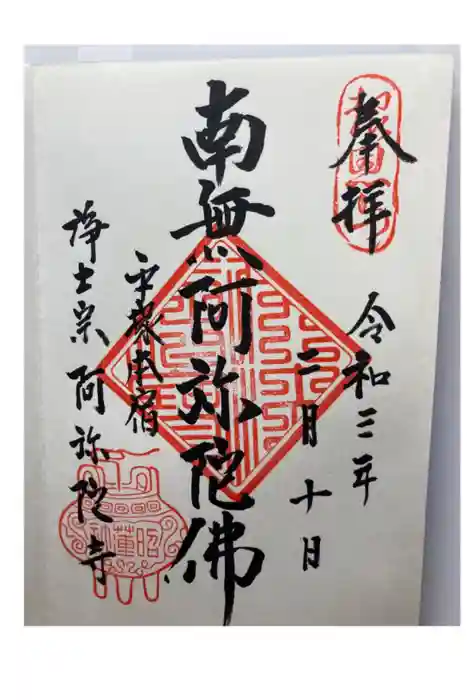 奉拝
令和三年
二月十日
南無阿弥陀佛
平塚本宿
浄土宗 阿弥陀寺